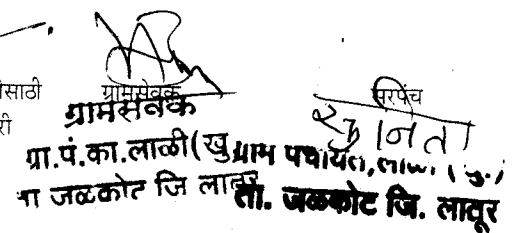 साठी ग्रामसेवक सरपंच
री ग्रामसेवक सुनिता
ग्रा.पं.का.लाळी(खु ग्राम पंचायत,
ता जळकोट जि लातूर ता. जळकोट जि. लातूर